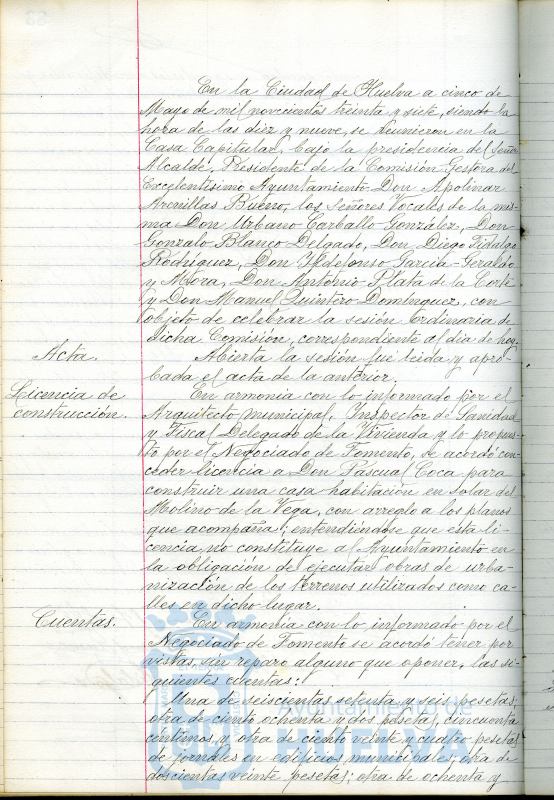 En la Ciudad de Huelva a cinco de
Mayo de mil novecientos treinta y siete, siendo la
hora de las diez y nueve, se reunieron en la
Casa Capitular, bajo la presidencia del Señor
Alcalde, Presidente de la Comisión Gestora del
Excelentísimo Ayuntamiento Don Apolinar
Arenillas Bueno, los Señores Vocales de la mis-
ma Don Urbano Carballo González, Don
Gonzalo Blanco Delgado, Don Diego Fidalgo
Rodríguez, Don Ildefonso García-Geraldo
y Mora, Don Antonio Plata de la Corte
y Don Manuel Quintero Domínguez, con
objeto de celebrar la sesión ordinaria de
dicha Comisión, correspondiente al día de hoy.
Acta. Abierta la sesión fué leída y apro-
bada el acta de la anterior.
Licencia de construcción. En armonía con lo informado por el
Arquitecto municipal, Inspector de Sanidad
y Fiscal Delegado de la Vivienda y lo propues-
to por el Negociado de Fomento, se acordó con-
ceder licencia a Don Pascual Coca para
construir una casa habitación en solar del
Molino de la Vega, con arreglo a los planos
que acompaña; entendiéndose que esta li-
cencia no constituye al Ayuntamiento en
la obligación de ejecutar obras de urba-
nización de los terrenos utilizados como ca-
lles en dicho lugar.
Cuentas. En armonía con lo informado por el
Negociado de Fomento se acordó tener por
vistas, sin reparo alguno que oponer, las si-
guientes cuentas:
Una de seiscientas setenta y seis pesetas;
otra de ciento ochenta y dos pesetas, cincuenta
céntimos, y otra de ciento veinte y cuatro pesetas
de jornales en edificios municipales; otra de
doscientas veinte pesetas; otra de ochenta y
Ayuntamiento de
HUELVA